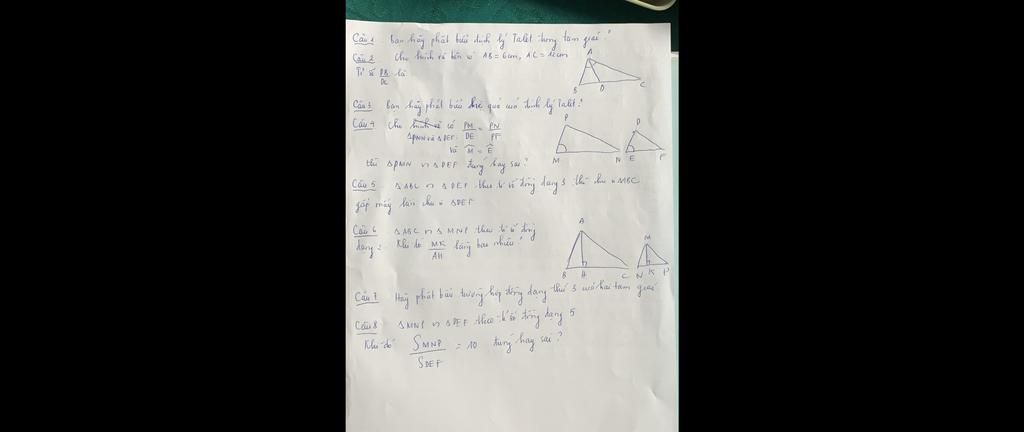 Câu 1 Bạn hãy phát biểu định lý Talet trong tam giác?
Câu 2 Cho hình vẽ bên có AB = 6cm, AC =
Tỉ số DB/DC là
A
B D C
Câu 3 Bạn hãy phát biểu hệ quả của định lý Talet?
Câu 4 Cho có PM/DE = PN/
ΔPMN và ΔDEF
và M̂ = Ê
thì ΔPMN ∽ ΔDEF đúng hay sai?
P
M N
D
E F
Câu 5 ΔABC ∽ ΔDEF theo tỉ số đồng dạng 3 thì chu vi ΔABC
gấp mấy lần chu vi ΔDEF
Câu 6 ΔABC ∽ ΔMNP theo tỉ số đồng
dạng 2 Khi đó MK/AH bằng bao nhiêu?
A
B H C
M
N K P
Câu 7 Hãy phát biểu trường hợp đồng dạng thứ 3 của hai tam giác
Câu 8 ΔMNP ∽ ΔDEF theo tỉ số đồng dạng 5
Khi đó S MNP / S DEF = 10 đúng hay sai?